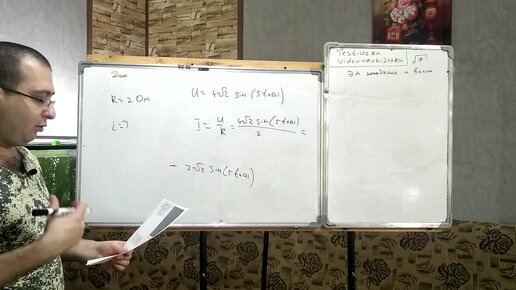 Дано
R = 2 Ом
i = ?
U = 4√2 sin(5t+π)
I = U/R = 4√2 sin(5t+π)/2 =
= 2√2 sin(5t+π)
Test-uz.ru
Videouroki-24.ru
√7
Эл колебания и волн